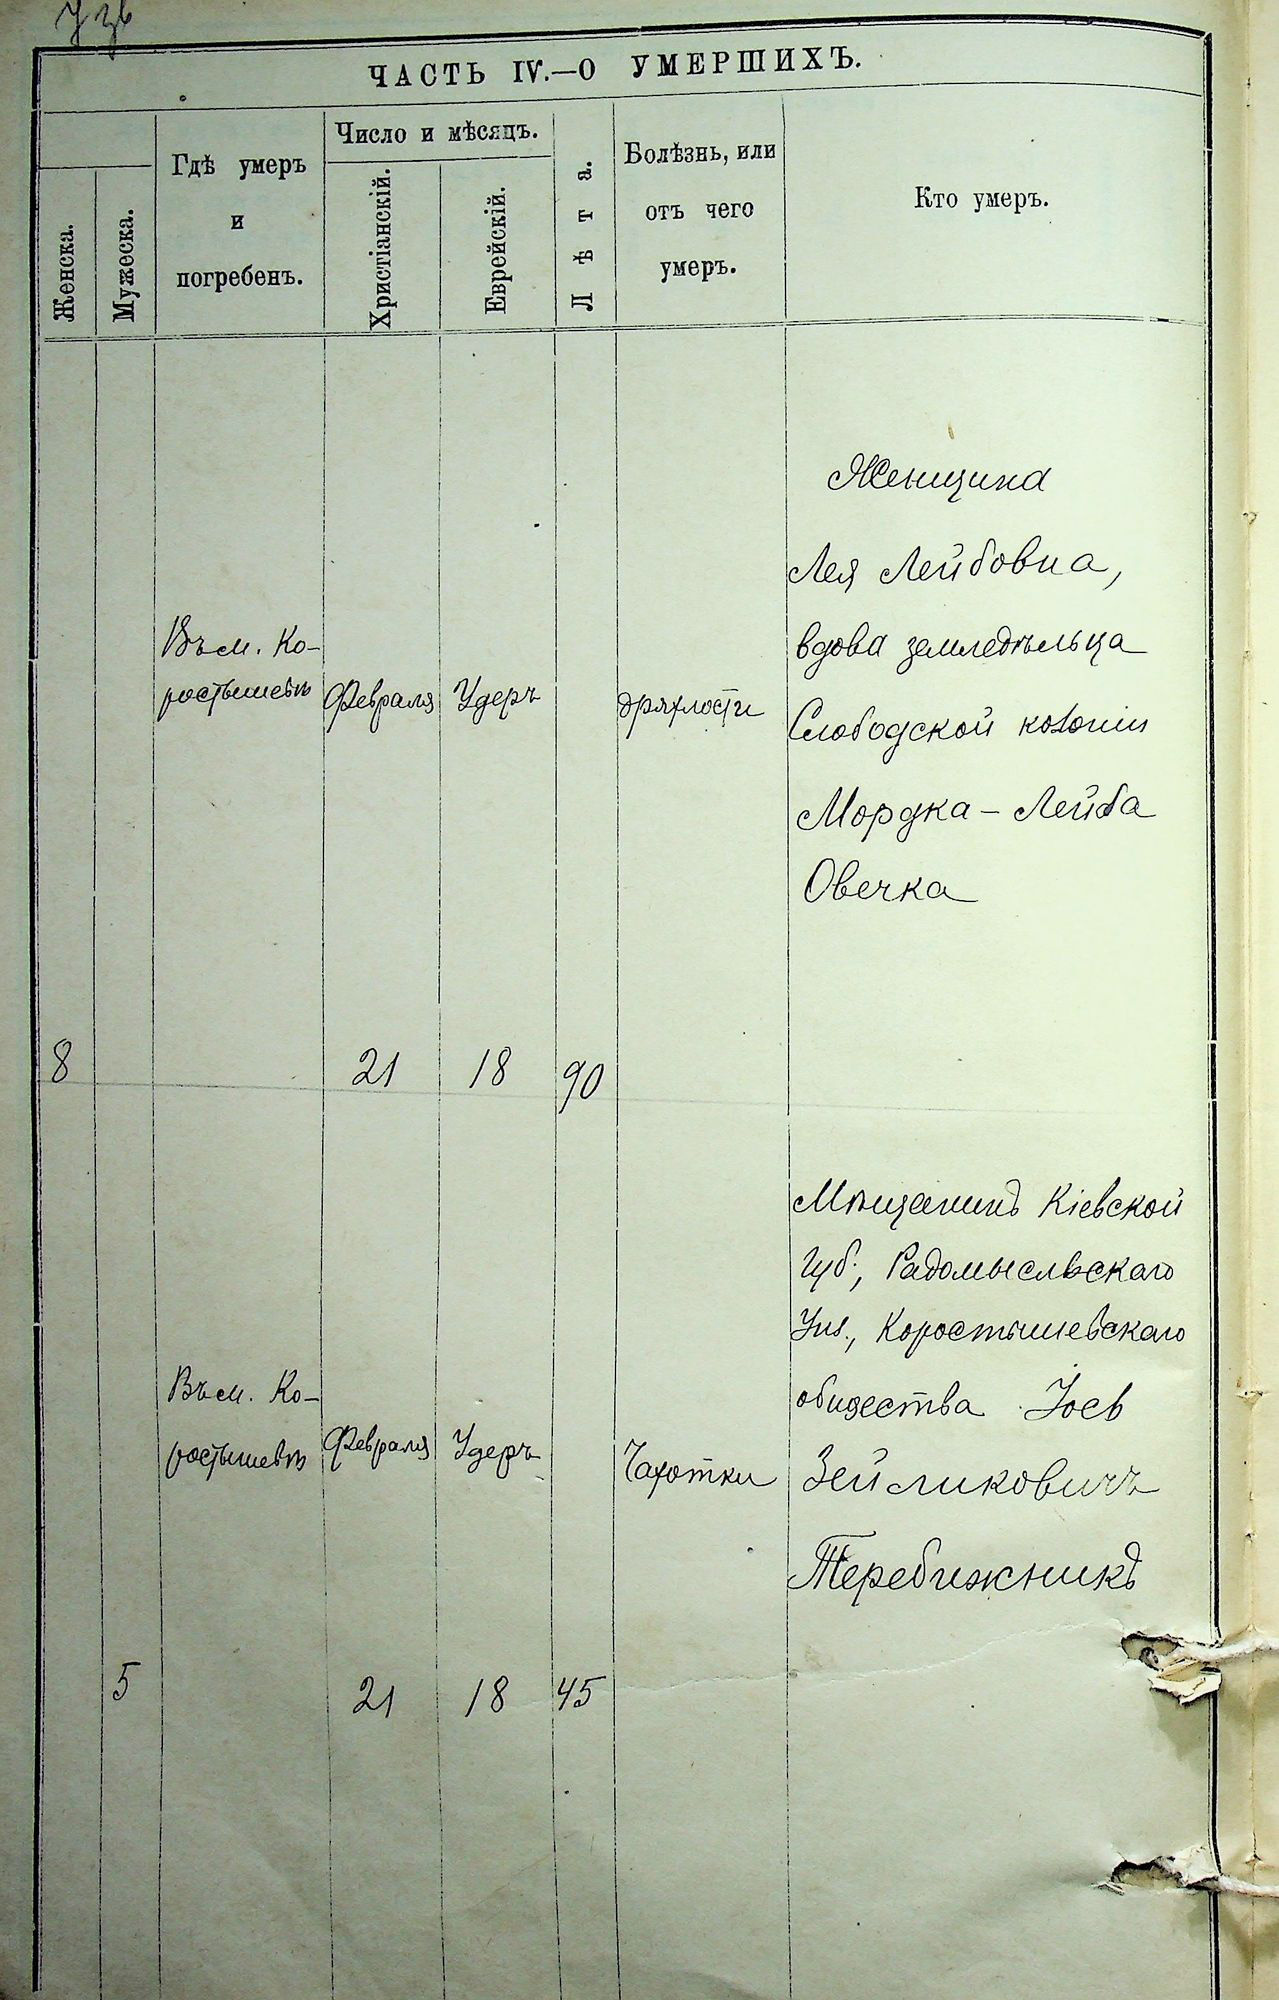 ЧАСТЬ IV.—О УМЕРШИХЪ.
Женска.
Мужеска.
Гдѣ умеръ
и
погребенъ.
Число и мѣсяцъ.
Христіанскій.
Еврейскій.
Лѣта.
Болѣзнь, или
отъ чего
умеръ.
Кто умеръ.
Женщина
Лея Лейбовна,
вдова земледѣльца
Слободской колоніи
Мордка - Лейба
Овечка
Въ м. Ко-
ростышевѣ
Февраля
Удеръ
дряхлости
8
21
18
90
Мѣщанинъ Кіевской
Губ., Радомысльскаго
Уѣз., Коростышевскаго
общества Іось
Зейликовичъ
Теребижникъ
Въ м. Ко-
ростышевѣ
Февраля
Удеръ
Чахотки
5
21
18
45